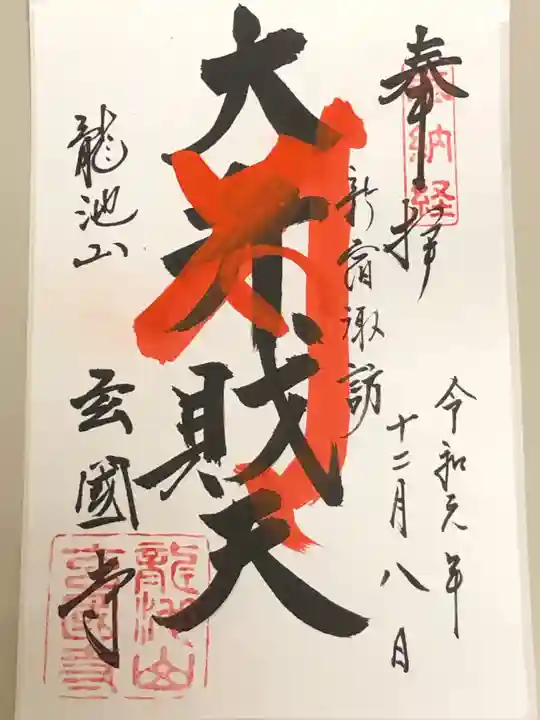 奉拝
奉納経
令和元年
十二月八日
新宿諏訪
大弁財天
龍池山
玄國寺
龍池山
玄國寺